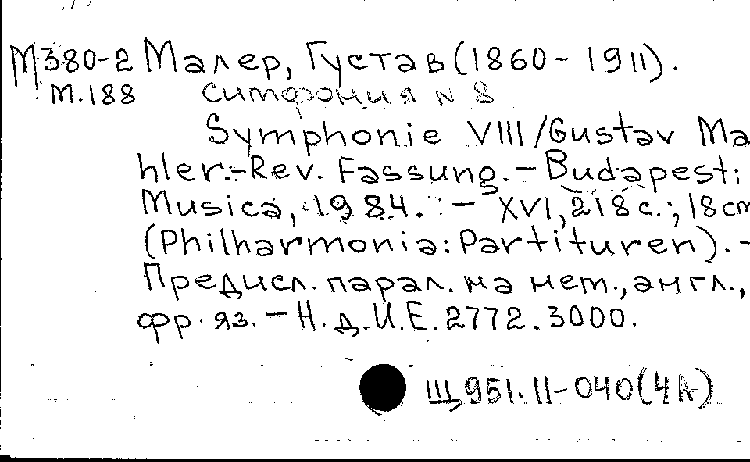 М380-2 Малер, Густав (1860-1911).
М.188 Симфония N 8
Symphonie VIII/Gustav Ma
hler.-Rev. Fassung.-Budapest:
Musica, 1984. - XVI, 218 с.; 18 cm
(Philharmonia: Partituren). -
Предисл. парал. на нем., англ.,
фр. яз. - Н.д.И.Е.2772.3000.
Щ951.11-040(4А)